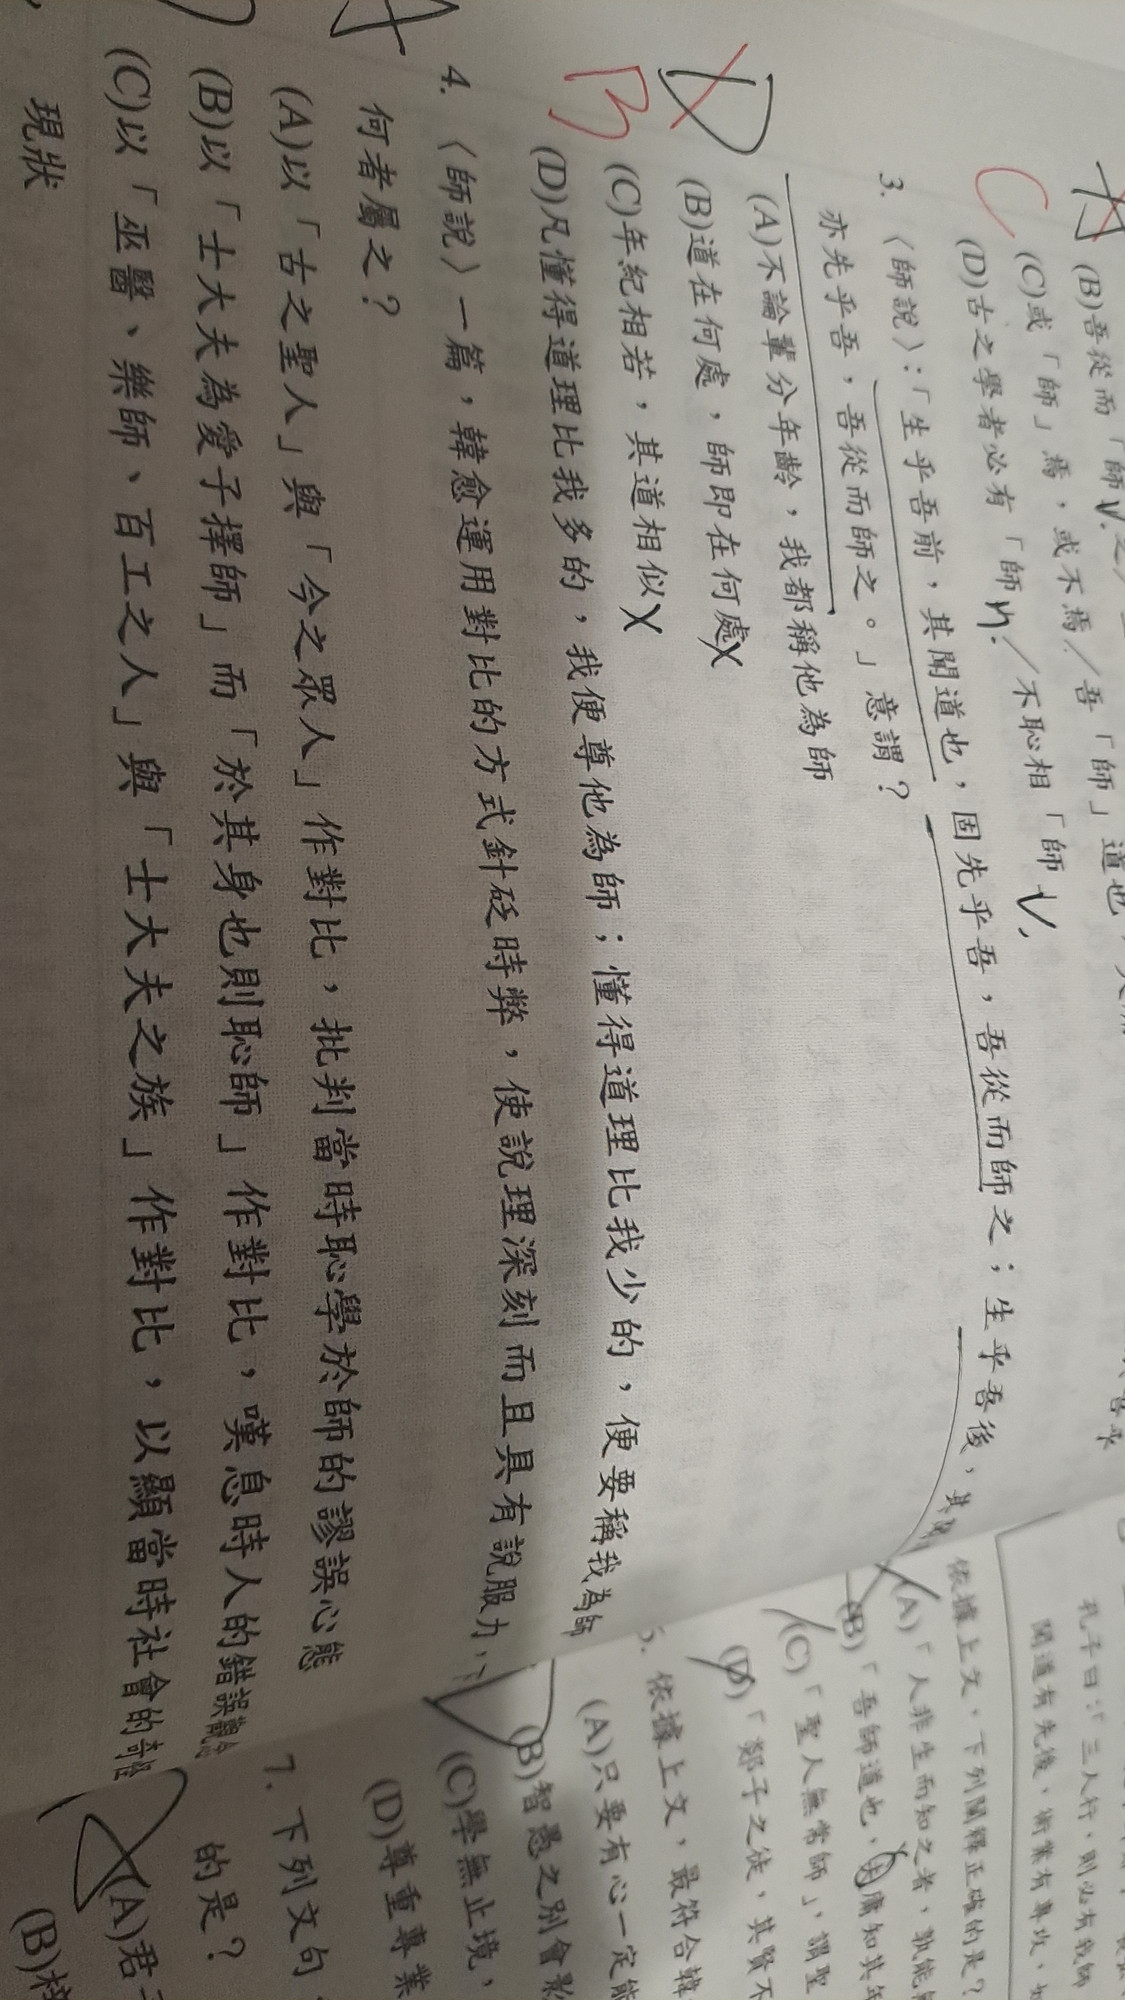 (B)吾從而「師
(C)或「師」焉，或不焉／吾「師」道也
(D)古之學者必有「師n.／不恥相「師v.
C
3.〈師說〉：「生乎吾前，其聞道也，固先乎吾，吾從而師之；生乎吾後，其聞
亦先乎吾，吾從而師之。」意謂？
(A)不論輩分年齡，我都稱他為師
(B)道在何處，師即在何處X
(C)年紀相若，其道相似X
(D)凡懂得道理比我多的，我便尊他為師；懂得道理比我少的，便要稱我為師
D
B
4.〈師說〉一篇，韓愈運用對比的方式針砭時弊，使說理深刻而且具有說服力，下
何者屬之？
(A)以「古之聖人」與「今之眾人」作對比，批判當時恥學於師的謬誤心態
(B)以「士大夫為愛子擇師」而「於其身也則恥師」作對比，嘆息時人的錯誤觀念
(C)以「巫醫、樂師、百工之人」與「士大夫之族」作對比，以顯當時社會的奇怪
現狀
孔子曰：「三人行，則必有我師
聞道有先後，術業有專攻，如
依據上文，下列闡釋正確的是？
(A)「人非生而知之者，孰能無
(B)「吾師道也，夫庸知其年
(C)「聖人無常師」，謂聖
(D)「郯子之徒，其賢不
依據上文，最符合韓
(A)只要有心一定能
(B)智愚之別會影
(C)學無止境，
(D)尊重專業
7.下列文句
的是？
(A)君子
(B)